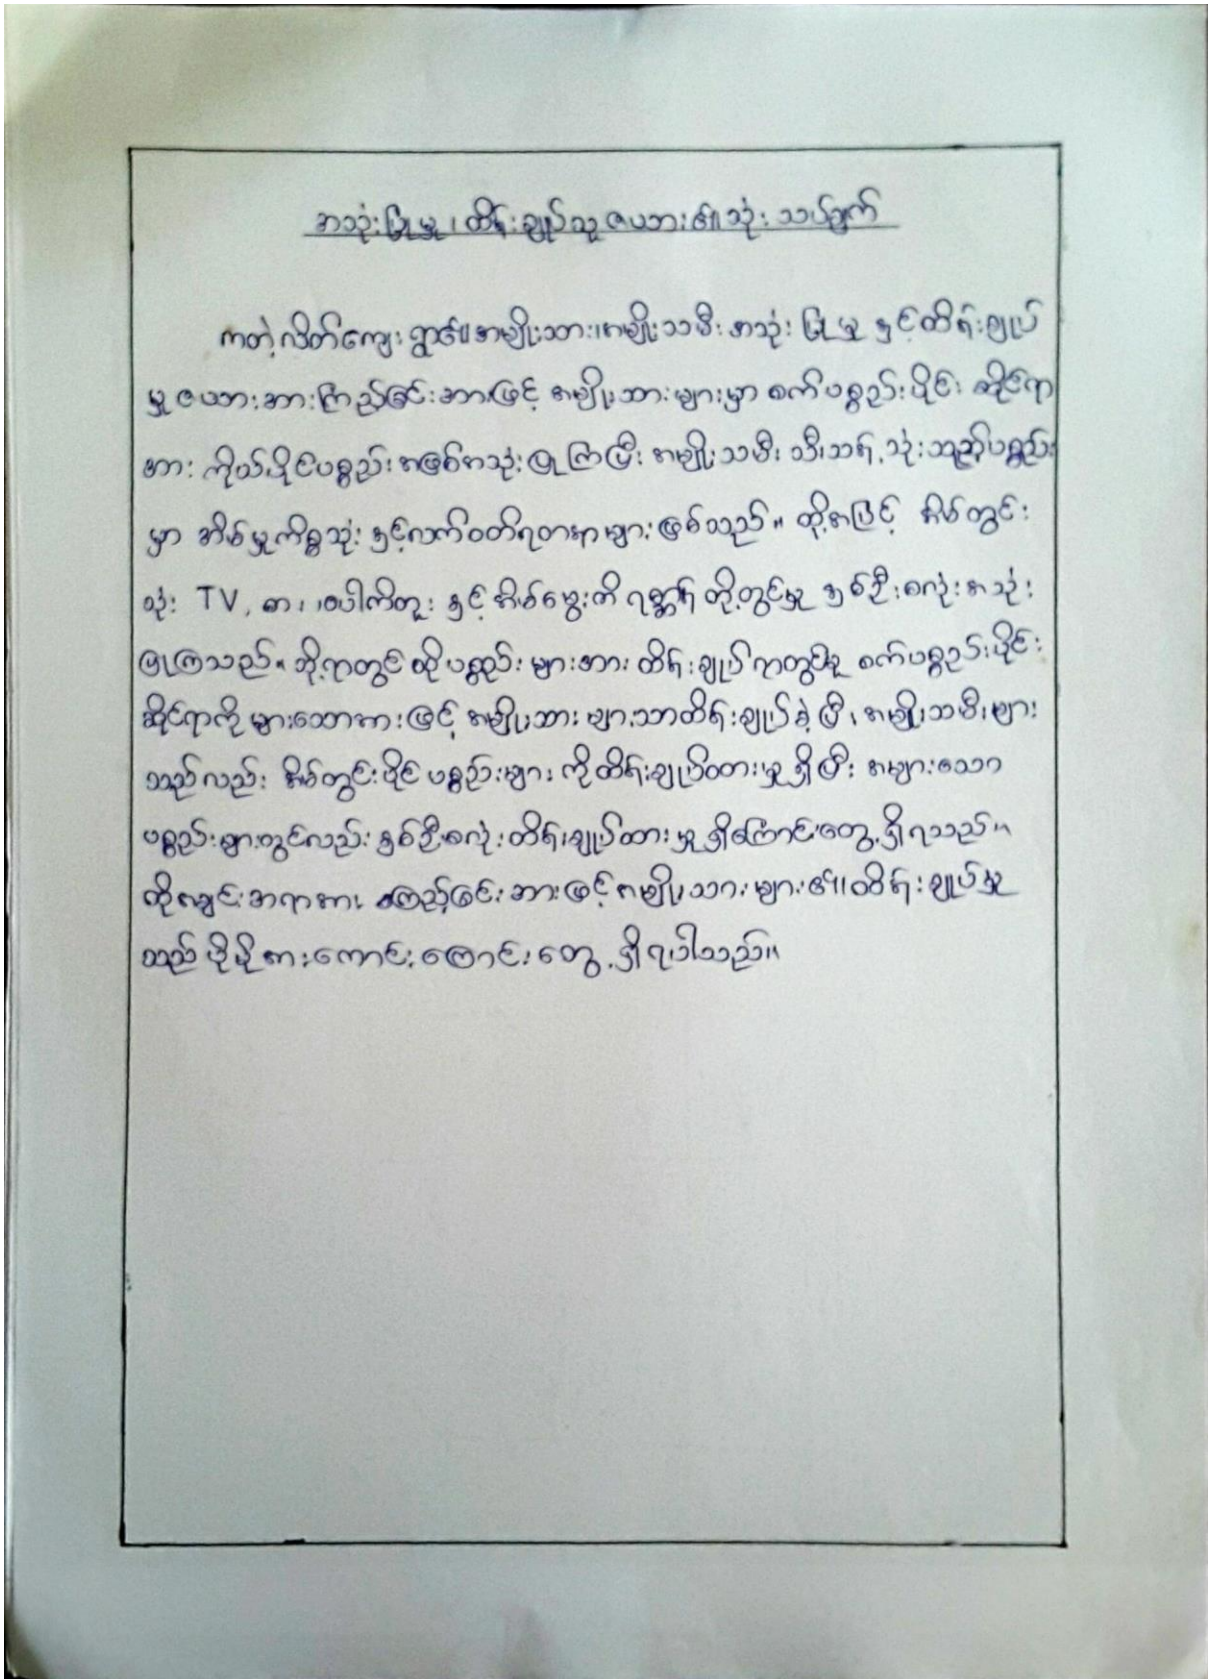 အသုံးပြုမှု၊ ထိန်းချုပ်သူ ဇယား၏ သုံးသပ်ချက်
ကတဲ့လိတ်ကျေးရွာ၏ အမျိုးသား၊ အမျိုးသမီး အသုံးပြုမှု နှင့် ထိန်းချုပ်
မှု ဇယားအားကြည့်ခြင်းအားဖြင့် အမျိုးသားများမှာ စက်ပစ္စည်းပိုင်း ဆိုင်ရာ
အား ကိုယ်ပိုင်ပစ္စည်းအဖြစ်အသုံးပြုကြပြီး အမျိုးသမီး သီးသန့်သုံးသည့်ပစ္စည်း
မှာ အိမ်မှုကိစ္စသုံး နှင့်လက်ဝတ်ရတနာများဖြစ်သည်။ ထို့အပြင့် အိမ်တွင်း
သုံး TV, စား၊ ပေါက်တူး နှင့် အိမ်မွေးတိရစ္ဆာန် တို့တွင်မူ နှစ်ဦးစလုံး အသုံး
ပြုကြသည်။ ထို့ရာတွင် ထိုပစ္စည်းများအား ထိန်းချုပ်ရာတွင်မူ စက်ပစ္စည်းပိုင်း
ဆိုင်ရာကို များသောအားဖြင့် အမျိုးသားများသာထိန်းချုပ်ခဲ့ပြီး အမျိုးသမီးများ
သည်လည်း အိမ်တွင်းပိုင်ပစ္စည်းများကို ထိန်းချုပ်ထားမှု ရှိပြီး အများသော
ပစ္စည်းများတွင်လည်း နှစ်ဦးစလုံးထိန်းချုပ်ထားမှု ရှိကြောင်းတွေ့ရှိရသည်။
ထို့ကြောင်း အရာအား ကြည့်ခြင်းအားဖြင့် အမျိုးသားများ၏ ထိန်းချုပ်မှု
သည် ပိုမိုအားကောင်းကြောင်း တွေ့ရှိရပါသည်။